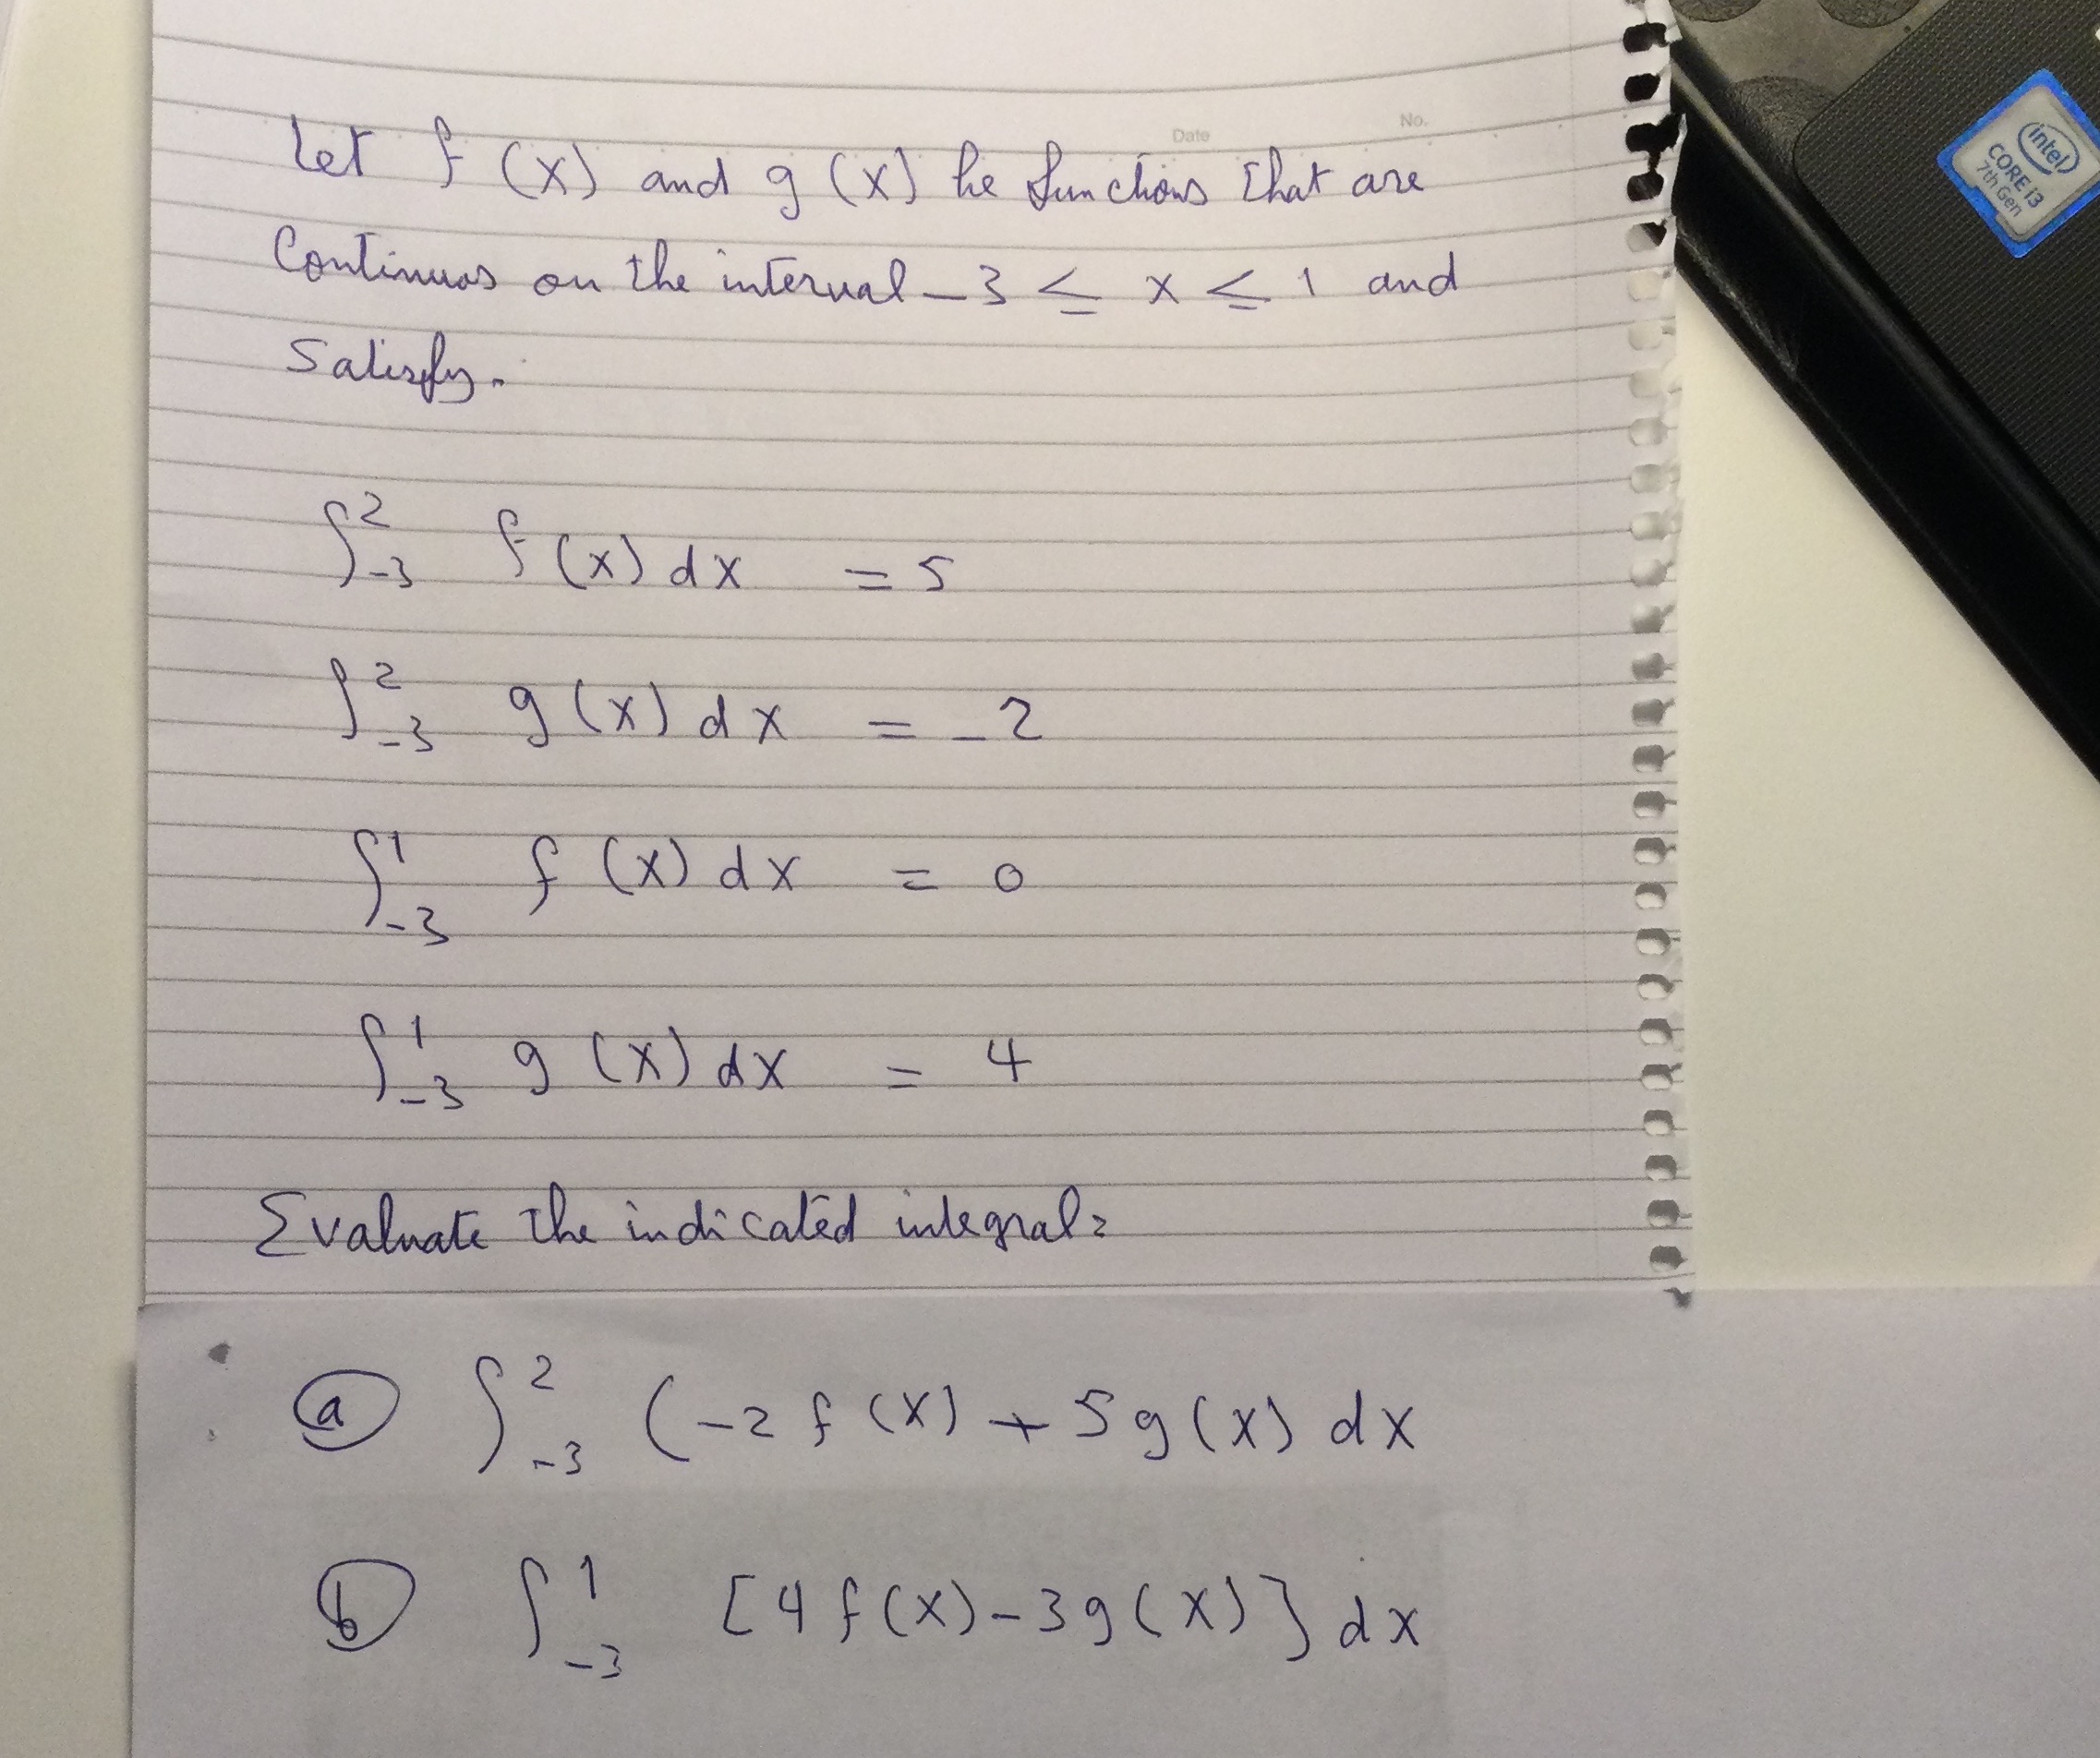 Date No.
Let f (x) and g (x) be functions that are
Continuos on the interval -3 ≤ x ≤ 1 and
Satisfy.
∫²₋₃ f(x) dx = 5
∫²₋₃ g(x) dx = -2
∫¹₋₃ f (x) dx = 0
∫¹₋₃ g (x) dx = 4
Evaluate the indicated integral:
(a) ∫²₋₃ (-2 f (x) + 5 g(x) dx
(b) ∫¹₋₃ [4 f(x) - 3 g(x)] dx
intel
CORE i3
7th Gen